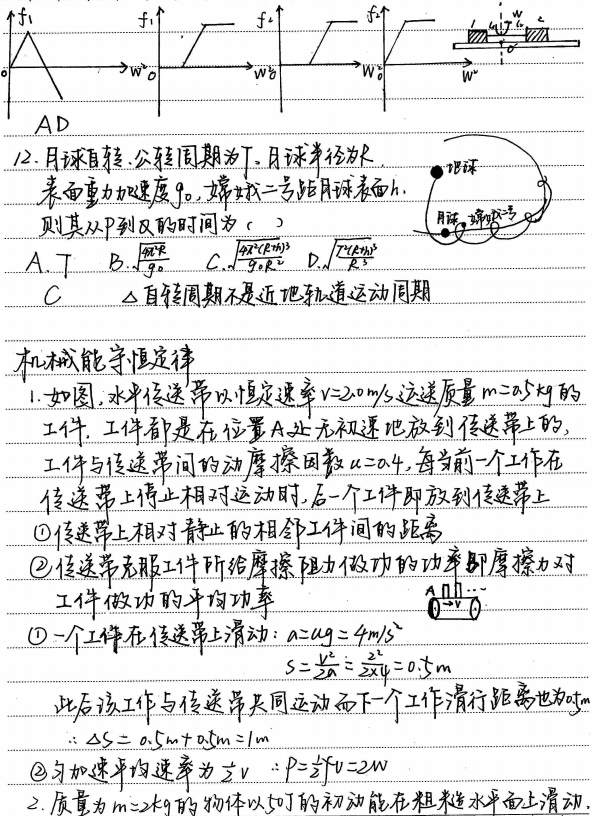 f₁ f₁ f₂ f₂ 1 W 2
0 W² 0 W² 0 W² 0 W² O'
AD
12.月球自转、公转周期为T。月球半径为R,
地球
表面重力加速度g₀,嫦娥二号距月球表面h.
则其从P到Q的时间为( )
月球 嫦娥二号
A. T B. √(4π²R/g₀) C. √(4π²(R+h)³/g₀R²) D. √(T²(R+h)³/R³)
C △自转周期不是近地轨道运动周期
机械能守恒定律
1.如图,水平传送带以恒定速率v=2.0m/s运送质量m=0.5kg的
工件,工件都是在位置A处无初速地放到传送带上的,
工件与传送带间的动摩擦因数u=0.4,每当前一个工作在
传送带上停止相对运动时,后一个工件即放到传送带上
①传送带上相对静止的相邻工件间的距离
②传送带克服工件所给摩擦阻力做功的功率即摩擦力对
工件做功的平均功率
A v ...
①一个工件在传送带上滑动:a=ug=4m/s²
S=v²/2a=2²/2×4=0.5m
此后该工作与传送带共同运动而下一个工作滑行距离也为0.5m
∴ΔS=0.5m+0.5m=1m
②匀加速平均速率为½v ∴P=½fv=2W
2.质量为m=2kg的物体以50J的初动能在粗糙水平面上滑动.